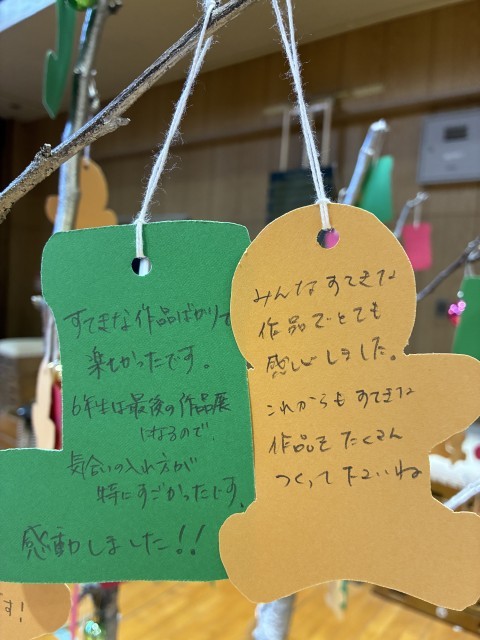 すてきな作品ばかりで
楽しかったです。
6年生は最後の作品展
になるので、
気合いの入れ方が
特にすごかったです。
感動しました!!
みんなすてきな
作品でとても
感心しました。
これからもすてきな
作品をたくさん
つくって下さいね
す!